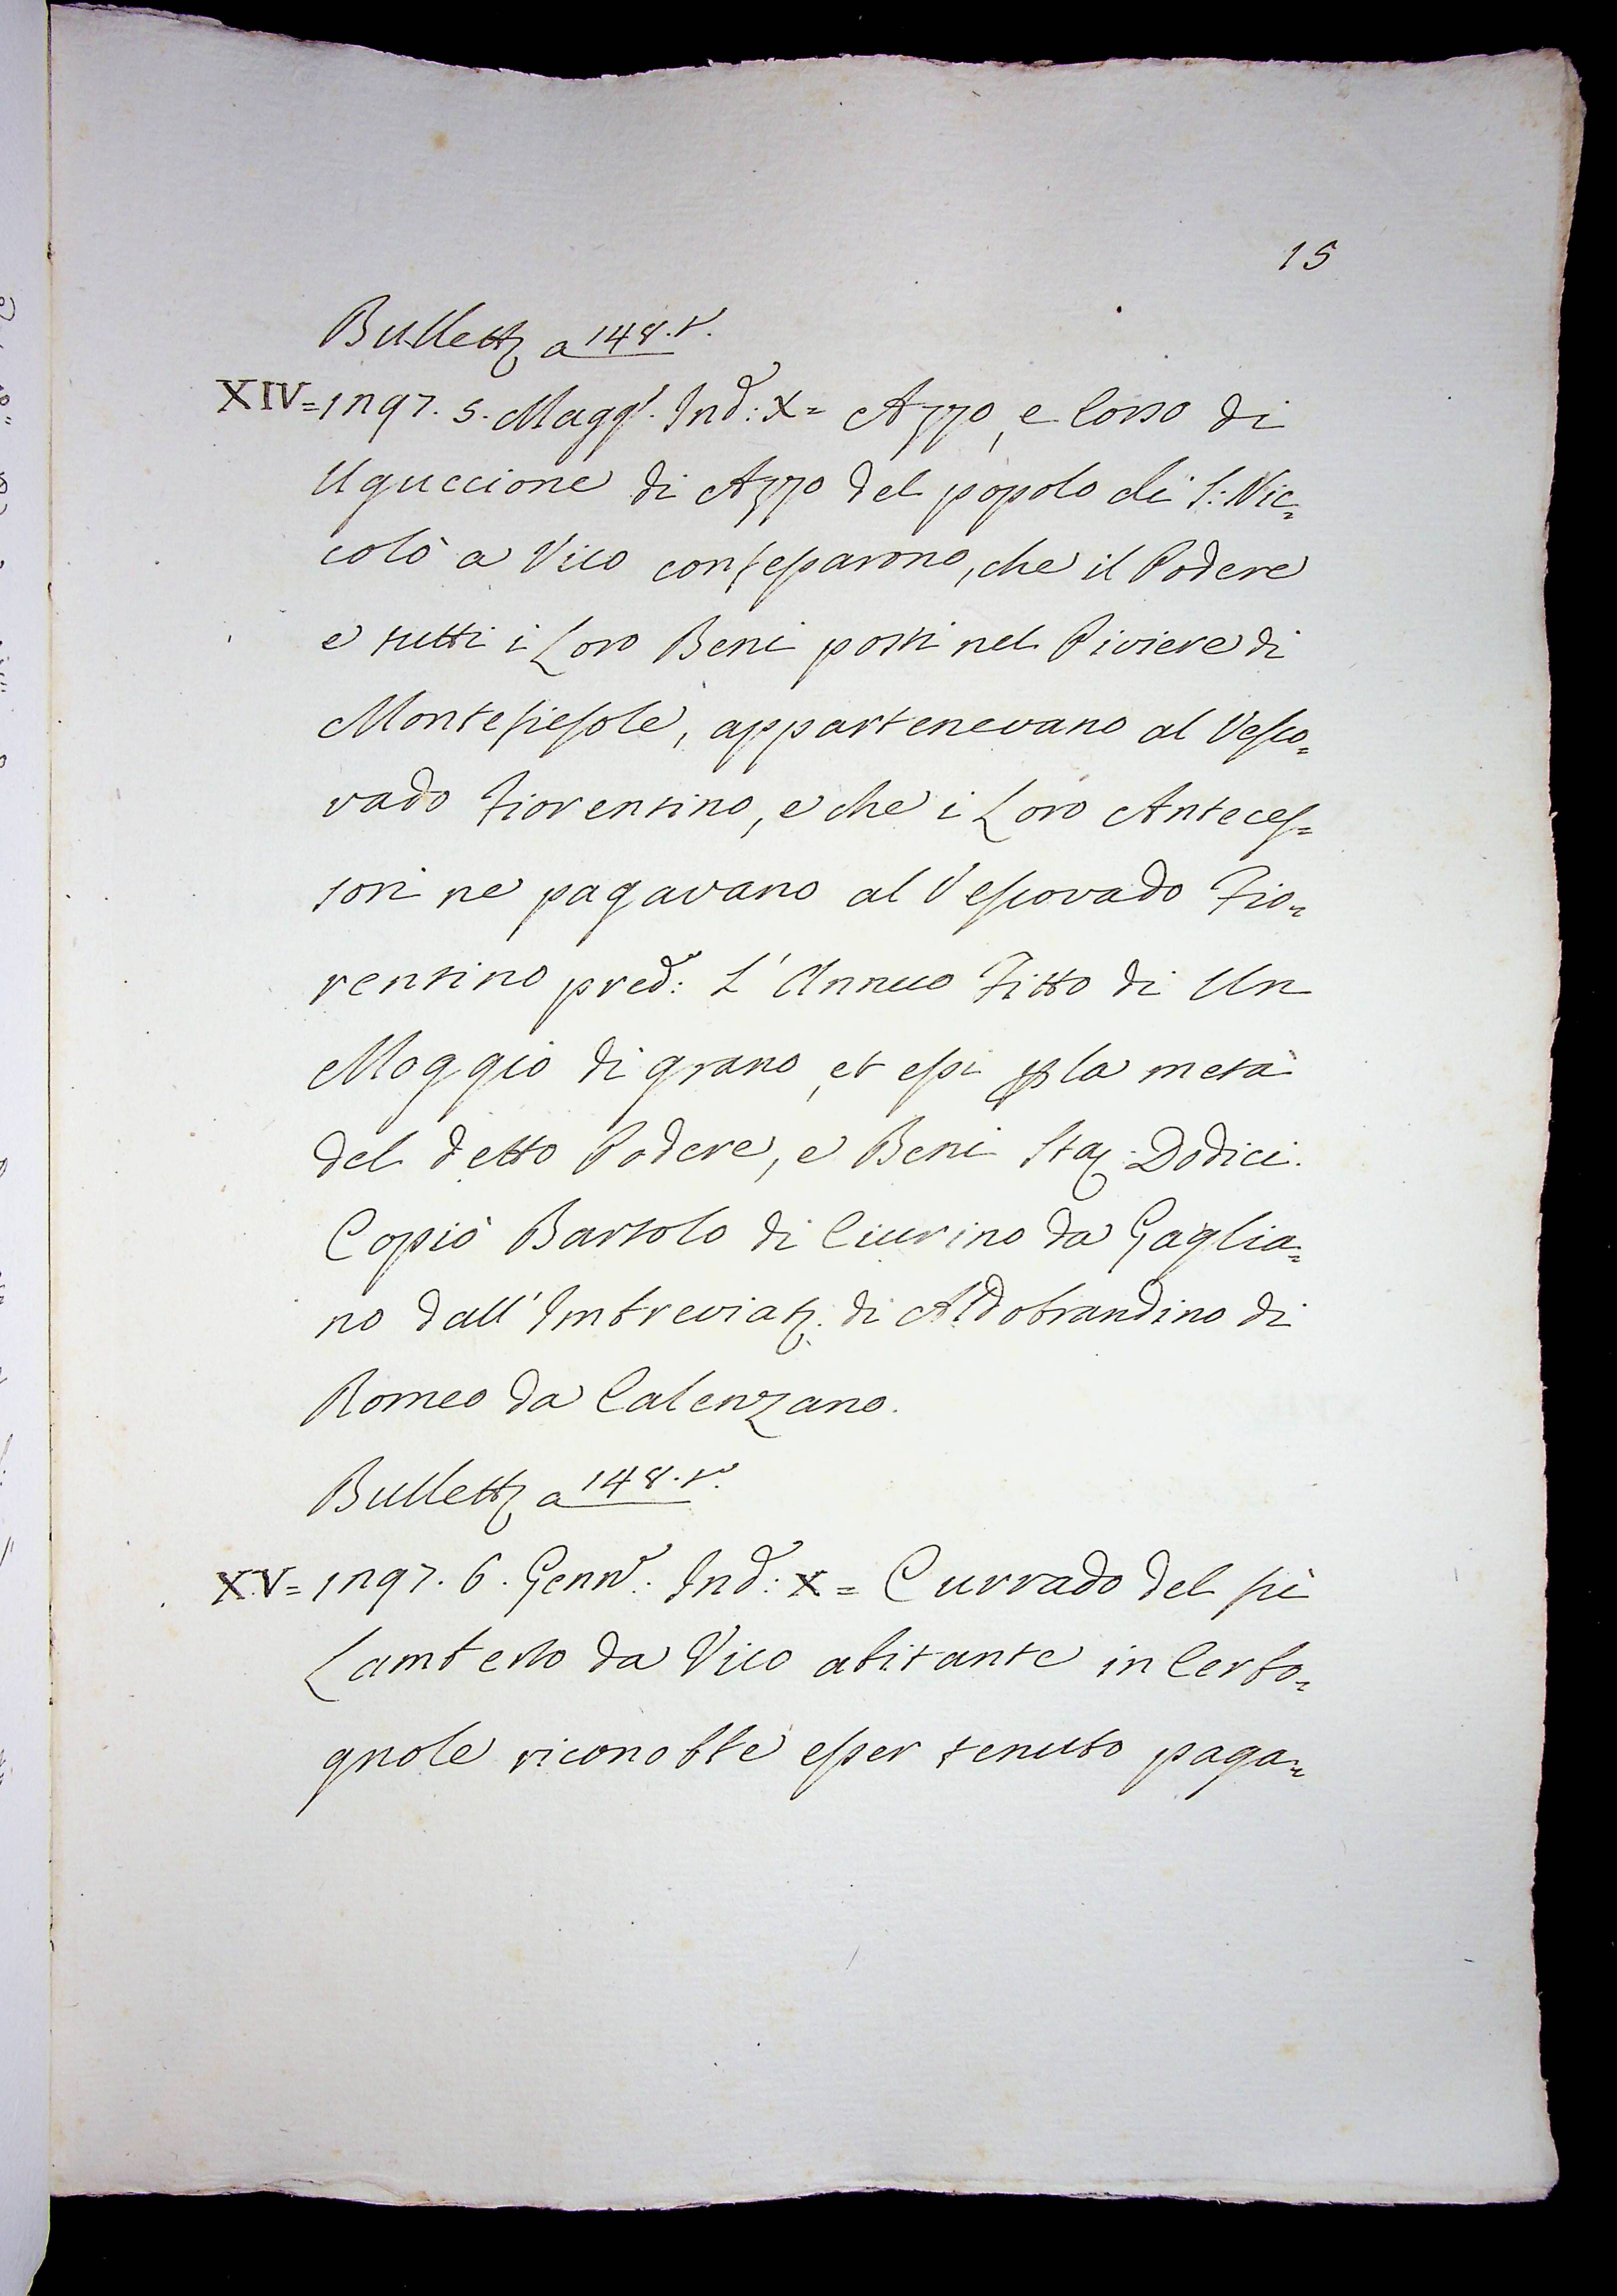 15
Bullett. a 148. v.
XIV = 1297. 5. Magg. Ind: X = Azzo, e Corso di
Uguccione di Azzo del popolo di S: Nic=
colò a Vico confessarono, che il Podere
e tutti i Loro Beni posti nel Piviere di
Montefiesole, appartenevano al Vesco=
vado Fiorentino, e che i Loro Anteces=
sori ne pagavano al Vescovado Fio=
rentino pred: L'Annuo Fitto di Un
Moggio di grano, et essi p la metà
del detto Podere, e Beni Sta: Dodici.
Copiò Bartolo di Ciurino da Gaglia=
no dall'Imbreviat. di Aldobrandino di
Romeo da Calenzano.
Bullett. a 148. v.
XV = 1297. 6. Genn. Ind: X = Currado del fù
Lamberto da Vico abitante in Cerbo=
gnole riconobbe esser tenuto paga=